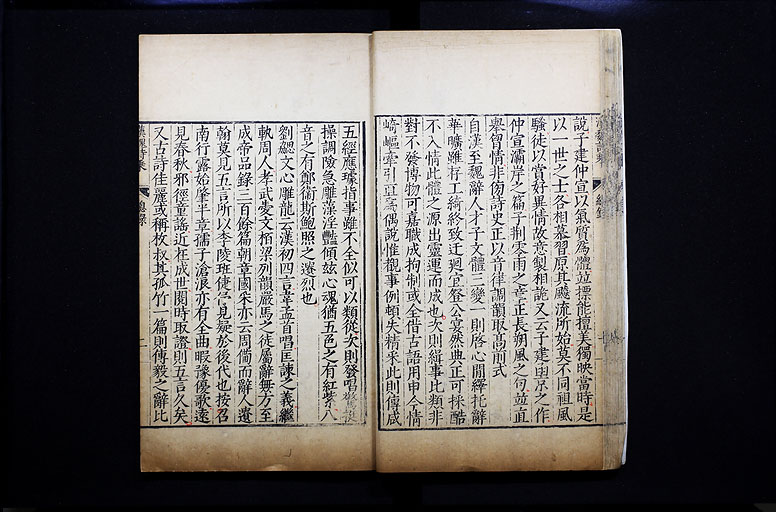 說子建仲宣以氣質為體並摽能擅美獨映當時是
以一世之士各相慕習原其飈流所始莫不同祖風
騷徒以賞好異情故意製相詭又云子建函京之作
仲宣灞岸之篇子荆零雨之章正長朔風之句並直
舉胷情非傍詩史正以音律調韻取高前式
自漢至魏辭人才子文體三變一則啓心閒繹托辭
華曠雖存工綺終致迂迴宜登公宴然典正可採酷
不入情此體之源出靈運而成也次則緝事比類非
對不發博物可嘉職成拘制或全借古語用申今情
崎嶇牽引直為偶說惟覩事例頓失精采此則傅咸
五經應璩指事雖不全似可以類從次則發唱驚挺
操調險急雕藻淫豔傾炫心魂猶五色之有紅紫八
音之有鄭衛斯鮑照之遺烈也
劉勰文心雕龍云漢初四言韋孟首唱匡諫之義繼
軌周人孝武愛文栢梁列韻嚴馬之徒屬辭無方至
成帝品錄三百餘篇朝章國采亦云周備而辭人遺
翰莫見五言所以李陵班倢伃見疑於後代也按召
南行露始肇半章孺子滄浪亦有全曲暇豫優歌遠
見春秋邪徑童謠近在成世閱時取證則五言久矣
又古詩佳麗或稱枚叔其孤竹一篇則傅毅之辭比
漢魏詩乗
總錄